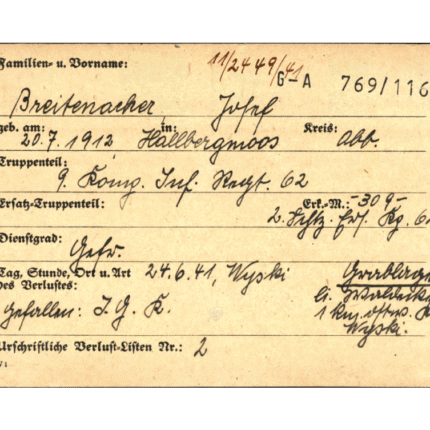 Familien- u. Vorname:
11/2449/41
G-A 769/116
Breitenacher, Josef
geb. am: in: Kreis:
20.7.1912 Hallbergmoos
Truppenteil:
9. Komp. Inf. Regt. 62
Ersatz-Truppenteil: Erk.-M.: -309-
2. Schtz. Ers. Kp. 6
Dienstgrad:
Gefr.
Tag, Stunde, Ort u. Art 24.6.41, Wyski Grablage
des Verlustes: li. Waldecke
gefallen: I. G. K. 1 km östw.
Wyski.
Urschriftliche Verlust-Listen Nr.: 2